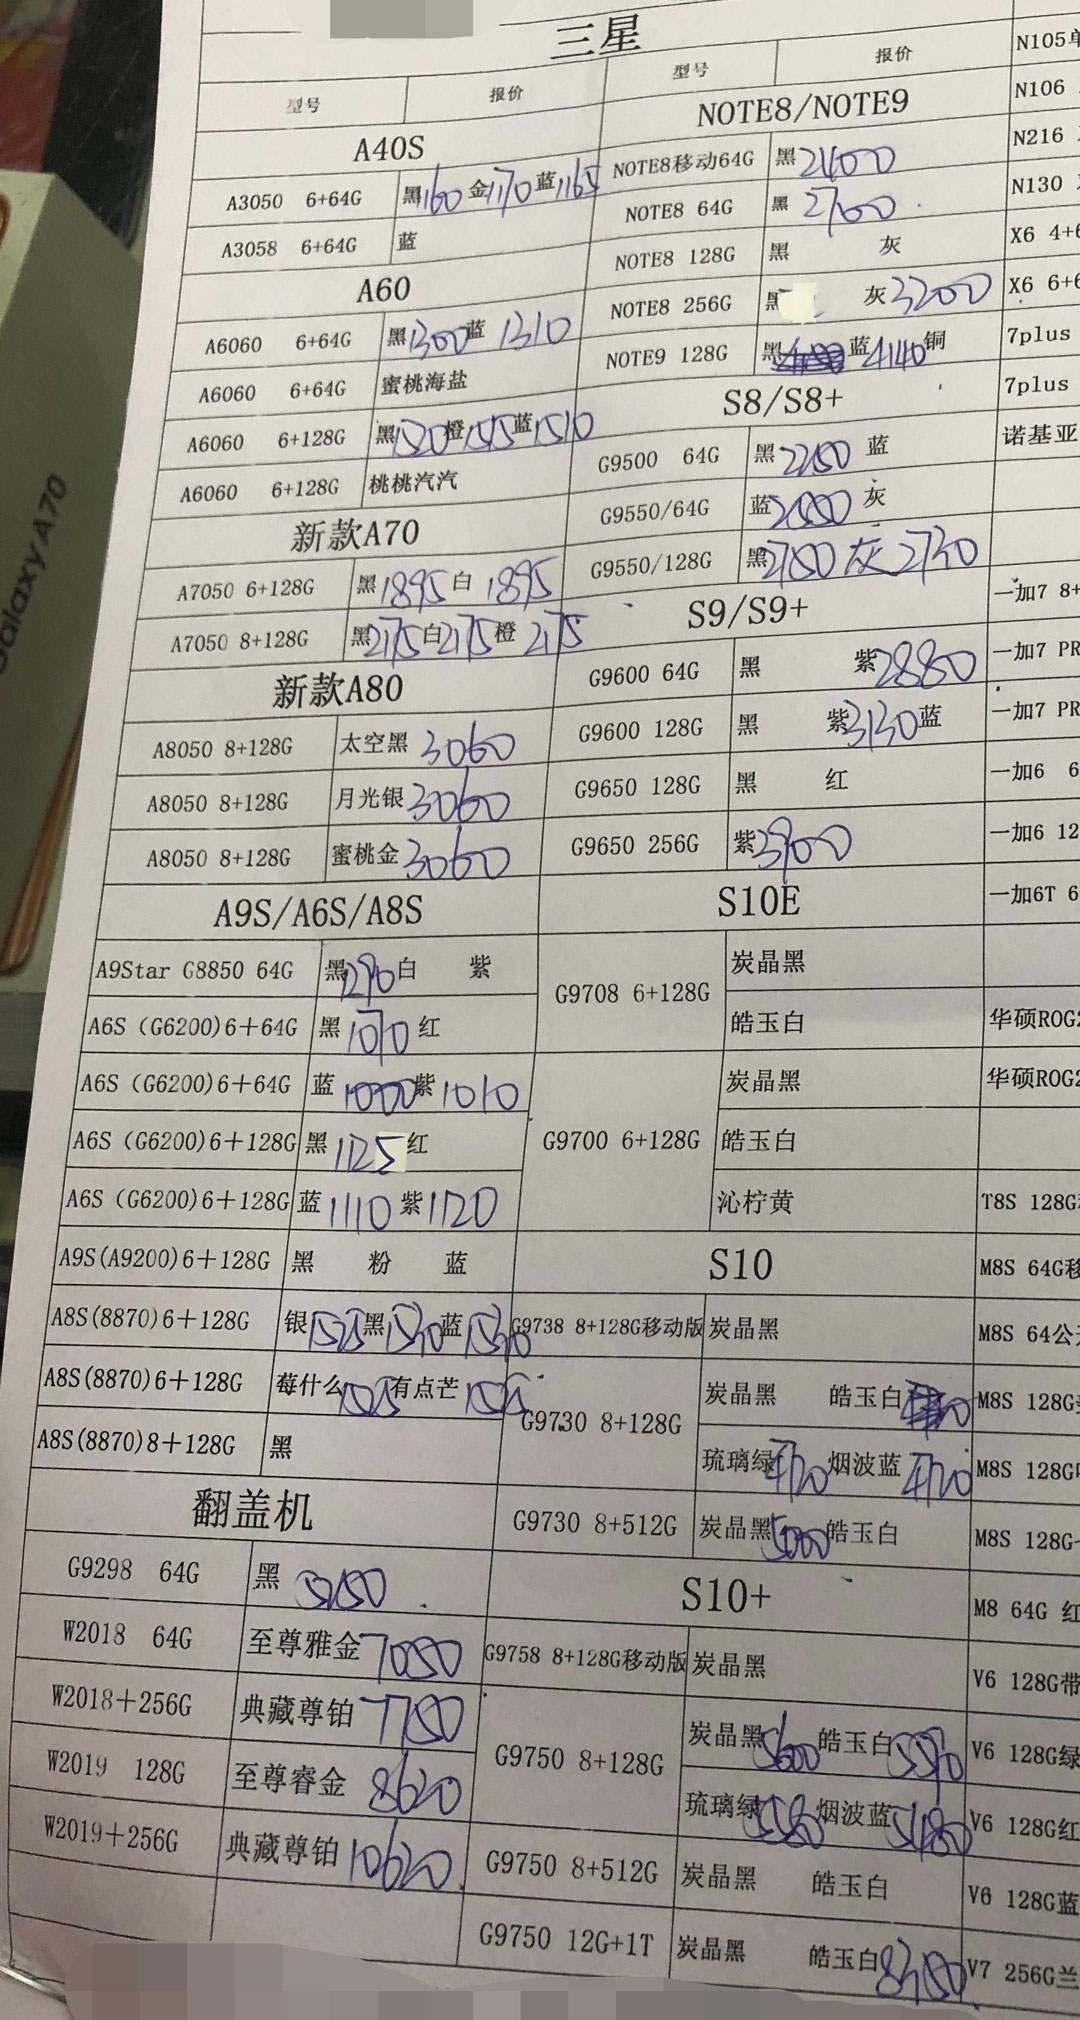 三星
型号 报价
A40S
A3050 6+64G 黑1160 金1170 蓝1165
A3058 6+64G 蓝
A60
A6060 6+64G 黑1300 蓝1310
A6060 6+64G 蜜桃海盐
A6060 6+128G 黑1520 橙1515 蓝1510
A6060 6+128G 桃桃汽汽
新款A70
A7050 6+128G 黑1895 白1895
A7050 8+128G 黑2175 白2175 橙2175
新款A80
A8050 8+128G 太空黑 3060
A8050 8+128G 月光银 3060
A8050 8+128G 蜜桃金 3060
A9S/A6S/A8S
A9Star G8850 64G 黑1290 白 紫
A6S (G6200)6+64G 黑1070 红
A6S (G6200)6+64G 蓝1000 紫1010
A6S (G6200)6+128G 黑1125 红
A6S (G6200)6+128G 蓝1110 紫1120
A9S(A9200)6+128G 黑 粉 蓝
A8S(8870)6+128G 银1525 黑 蓝
A8S(8870)6+128G 莓什么 有点芒
A8S(8870)8+128G 黑
翻盖机
G9298 64G 黑
W2018 64G 至尊雅金 7050
W2018+256G 典藏尊铂 7750
W2019 128G 至尊睿金 8620
W2019+256G 典藏尊铂 10620
型号 报价
NOTE8/NOTE9
NOTE8移动64G 黑2400
NOTE8 64G 黑 2700
NOTE8 128G 黑 灰
NOTE8 256G 黑 灰3200
NOTE9 128G 黑 蓝4140 铜
S8/S8+
G9500 64G 黑2250 蓝
G9550/64G 蓝2550 灰
G9550/128G 黑2750 灰2730
S9/S9+
G9600 64G 黑 紫2880
G9600 128G 黑 紫3130 蓝
G9650 128G 黑 红
G9650 256G 紫3900
S10E
G9708 6+128G 炭晶黑
皓玉白
G9700 6+128G 炭晶黑
皓玉白
沁柠黄
S10
G9738 8+128G移动版 炭晶黑
G9730 8+128G 炭晶黑 皓玉白
琉璃绿4720 烟波蓝4720
G9730 8+512G 炭晶黑5000 皓玉白
S10+
G9758 8+128G移动版 炭晶黑
G9750 8+128G 炭晶黑5600 皓玉白5590
琉璃绿 烟波蓝5480
G9750 8+512G 炭晶黑 皓玉白
G9750 12G+1T 炭晶黑 皓玉白8350
N105单
N106
N216
N130
X6 4+6
X6 6+6
7plus
7plus
诺基亚
一加7 8+
一加7 PR
一加7 PR
一加6 6
一加6 12
一加6T 6
华硕ROG2
华硕ROG2
T8S 128G
M8S 64G移
M8S 64公
M8S 128G
M8S 128G
M8S 128G
M8 64G 红
V6 128G带
V6 128G绿
V6 128G红
V6 128G蓝
V7 256G兰
Galaxy A70